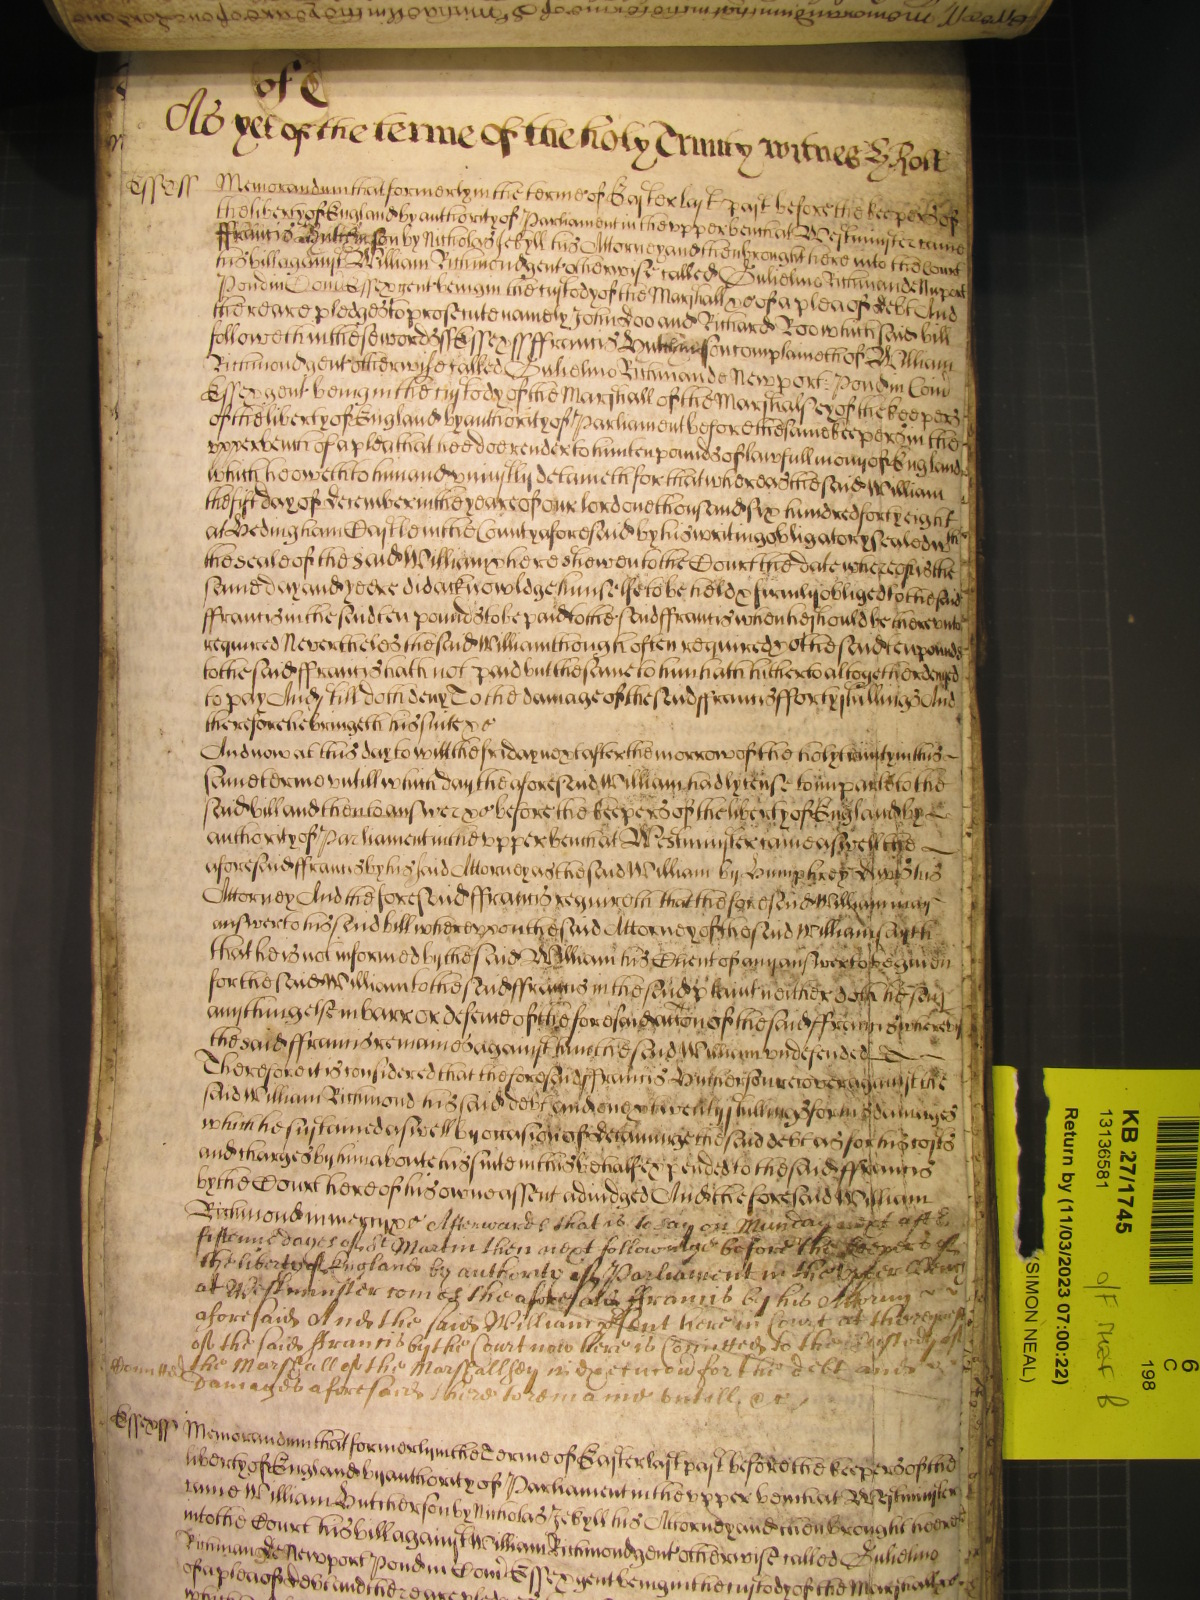 of
As yet of the terme of the holy Trinity witnes H Roll
Essex ss Memorandum that formerly in the terme of Easter last past before the keepers of
the liberty of England by authority of Parliament in the vpper bench at Westminster came
ffrancis Hutchinson by Nicholas Jekyll his Attorney and then brought here into the Court
his bill against William Richmond gent otherwise called Gulielmo Richman de Newport
Pond in Com Essex gent being in the custody of the Marshall &c of a plea of debt And
there are pledges to prosecute namely John Doo and Richard Roo which said bill
followeth in these words ss Essex ss ffrancis complaineth of William
Richmond gent otherwise called Gulielmo Richman de Newport Pond in Com
Essex gent being in the custody of the Marshall of the Marshalsey of the keepers
of the liberty of England by authority of Parliament before the same keepers in the
vpper bench of a plea that hee doe render to him ten pounds of lawfull mony of England
which he oweth to him and vniustly detaineth for that whereas the said William
the first day of december in the yeare of our lord one thousand six hundred forty eight
at Hedingham Castle in the County aforesaid by his writing obligatory sealed wth
the seale of the said William & here shewen to the Court the date whereof is the
same day and yeere did acknowledge himselfe to be held & firmly obliged to the said
ffrancis in the said ten pounds to be paid to the said ffrancis when he should be therevnto
required Neverthelesse the said William though often required &c the said ten pounds
to the said ffrancis hath not paid but the same to him hath hitherto altogether denyed
to pay And still doth deny To the damage of the said ffrancis fforty shillings And
therefore he bringeth his suite &c
And now at this day to witt the friday next after the morrow of the holy trinity in this
same terme vntill which day the aforesaid William had lycense to imparle to the
said bill and then to answer &c before the keepers of the liberty of England by
authority of Parliament in the vpper bench at Westminster came aswell the
aforesaid ffrancis by his said Attorney as the said William by Humphrey his
Attorney And the foresaid ffrancis requireth that the foresaid William may
answer to his said bill wherevpon the said Attorney of the said William sayth
that he is not informed by the said William his Client of any answer to be given
for the said William to the said ffrancis in the said plaint neither doth he say
any thing else in barr or defence of the foresaid action of the said ffrancis whereby
the said ffrancis remaines against him the said William vndefended
Therefore it is considered that the foresaid ffrancis Hutcherson recover against the
said William Richmond his said debt and one & twenty shillings for his damages
which he sustained aswell by occasion of deteininge the said debt as for his costs
and charges by him aboute his suite in this behalfe expended to the said ffrancis
by the Court here of his owne assent adiudged And the foresaid William
Richmond in mercy &c Afterwards that is to say on Munday next after
fifteene dayes of St Martin then next followinge before the keepers of
the liberty of England by authority of Parliament in the vpper Bench
at Westminster comes the aforesaid ffrancis by his Attorny
aforesaid And the said William present here in Court at the request
of the said ffrancis by the Court now here is Comitted to the Custody of
Comitted the Marshall of the Marshallsey in execucion for the debt and
damages aforesaid there to remaine vntill &c
Essex ss Memorandum that formerly in the Terme of Easter last past before the keepers of the
liberty of England by authority of Parliament in the vpper bench at Westminster
came William Hutcherson by Nicholas Jekyll his Attorney and then brought here
into the Court his bill against William Richmond gent otherwise called Gulielmo
Richman de Newport Pond in Com Essex gent being in the custody of the Marshall &c
of a plea of debt and there are
6
C
198
KB 27/1745
13136581
Return by (11/03/2023 07:00:22)
(SIMON NEAL)